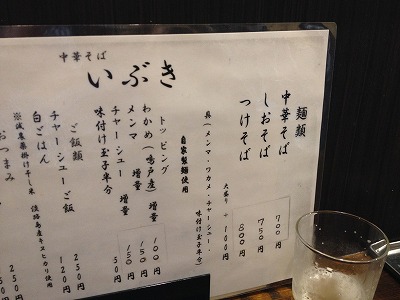 中華そば
いぶき
麺類
中華そば 700円
しおそば 750円
つけそば 800円
大盛り + 100円
具(メンマ・ワカメ・チャーシュー、味付け玉子半分)
自家製麺使用
トッピング
わかめ(鳴戸産)増量 100円
メンマ 増量 150円
チャーシュー 増量 150円
味付け玉子半分 50円
ご飯類
チャーシューご飯 250円
白ごはん 120円
※減農薬掛け干し米 淡路島産キヌヒカリ使用
おつまみ
250円